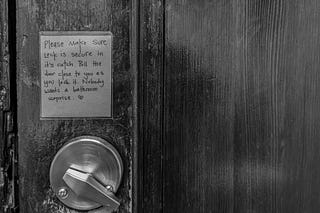 Please Make Sure
Lock is secure in
it's catch. Pull the
door close to you as
you lock it. Nobody
wants a bathroom
surprise. ☺